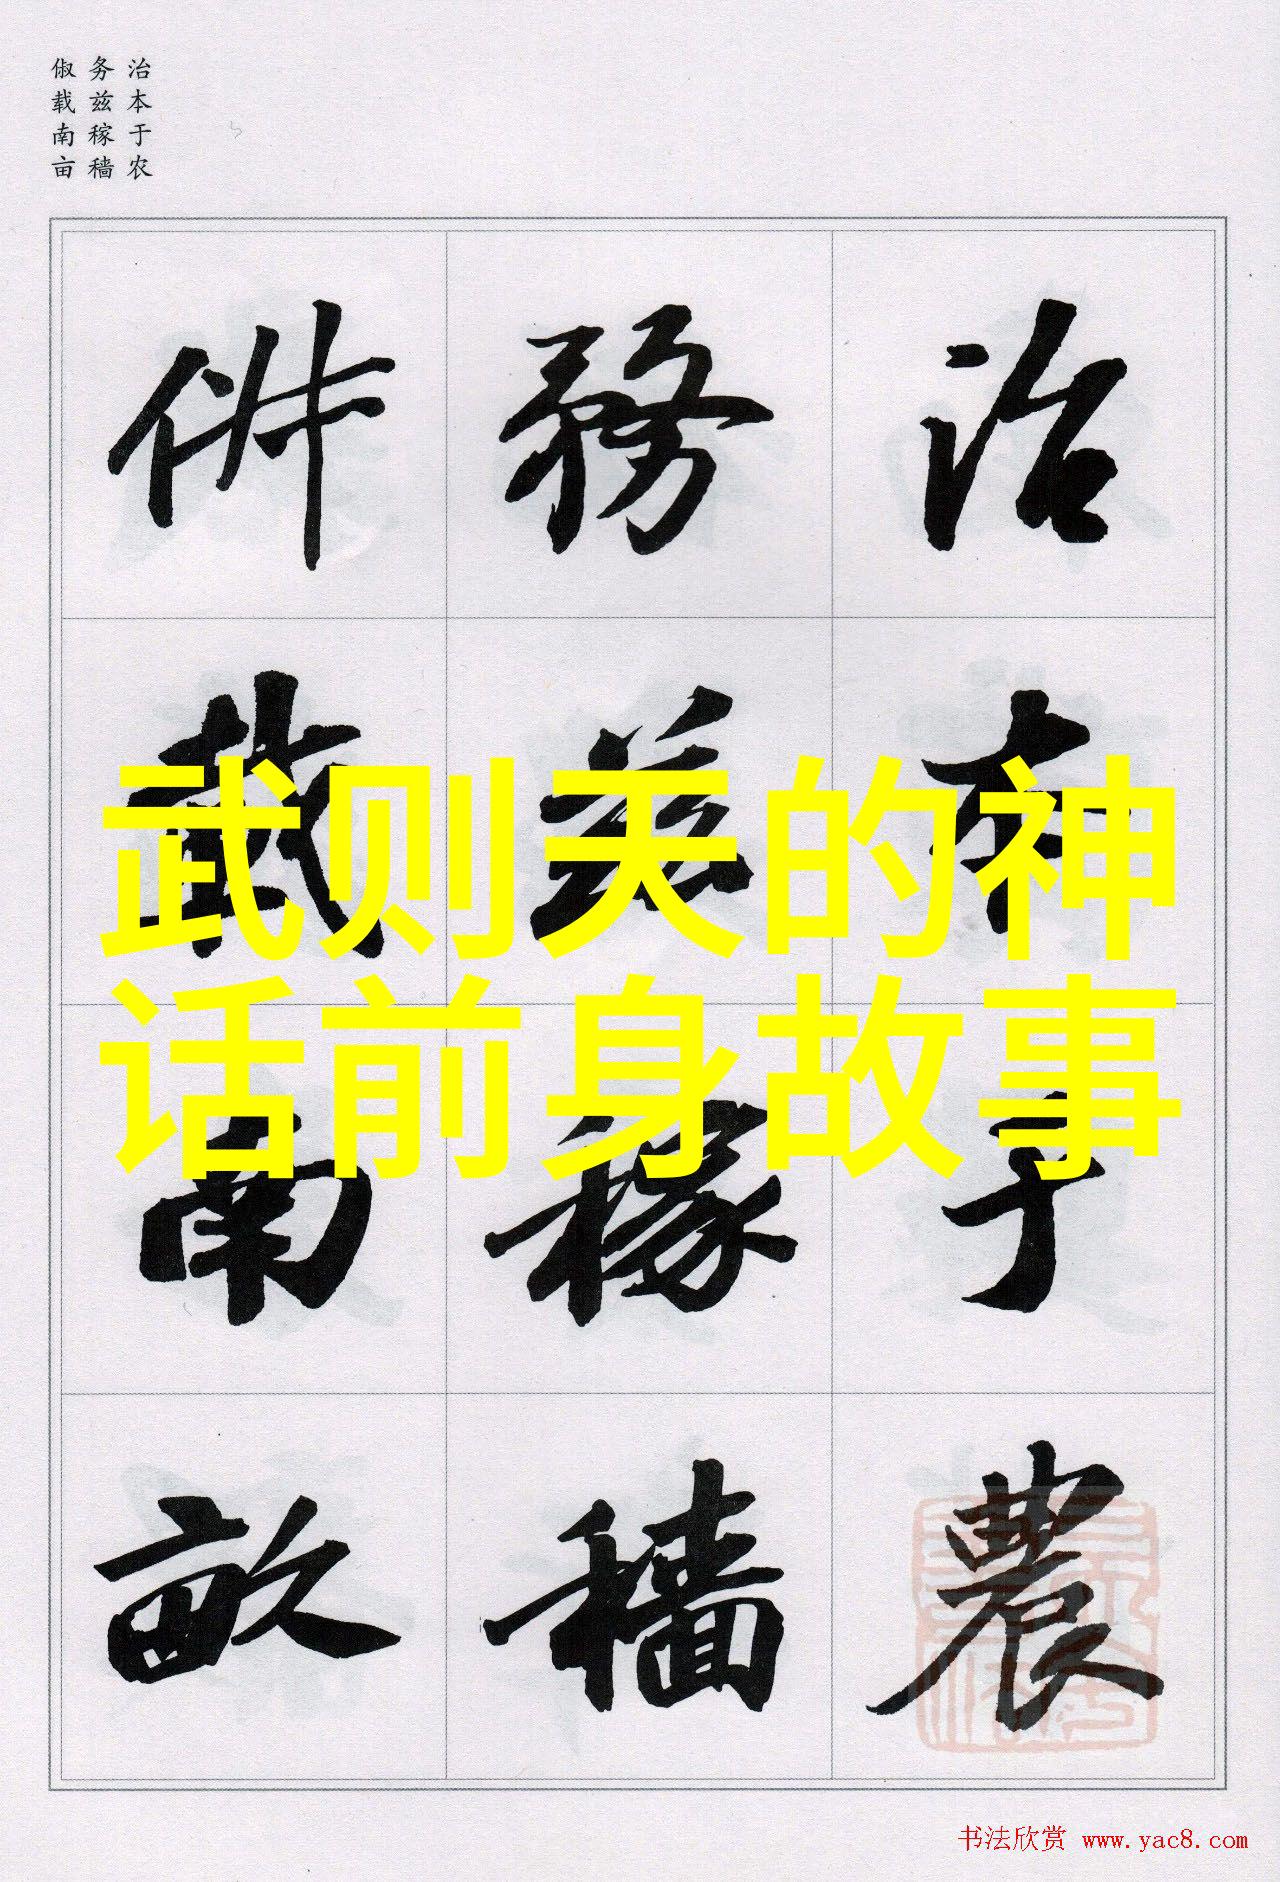 治本于农
务兹稼穑
俶载南亩
治本于農
務茲稼穡
俶載南畝
武则天的神
话前身故事
书法欣赏 www.yac8.com